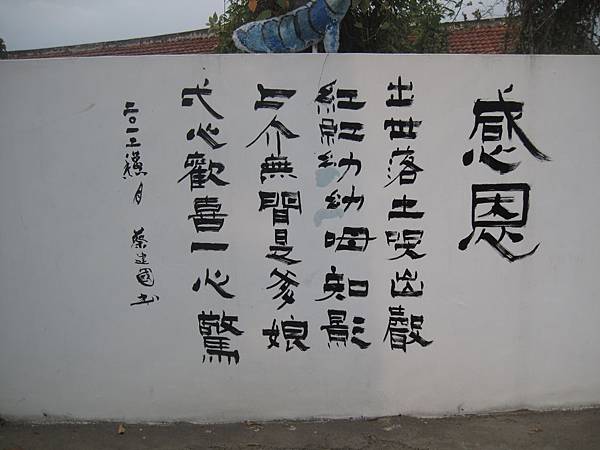 感恩
出世落土哭出聲
紅紅幼幼呣知影
上介無閒是爹娘
弌心歡喜一心驚
二〇一三 月
蔡建國书